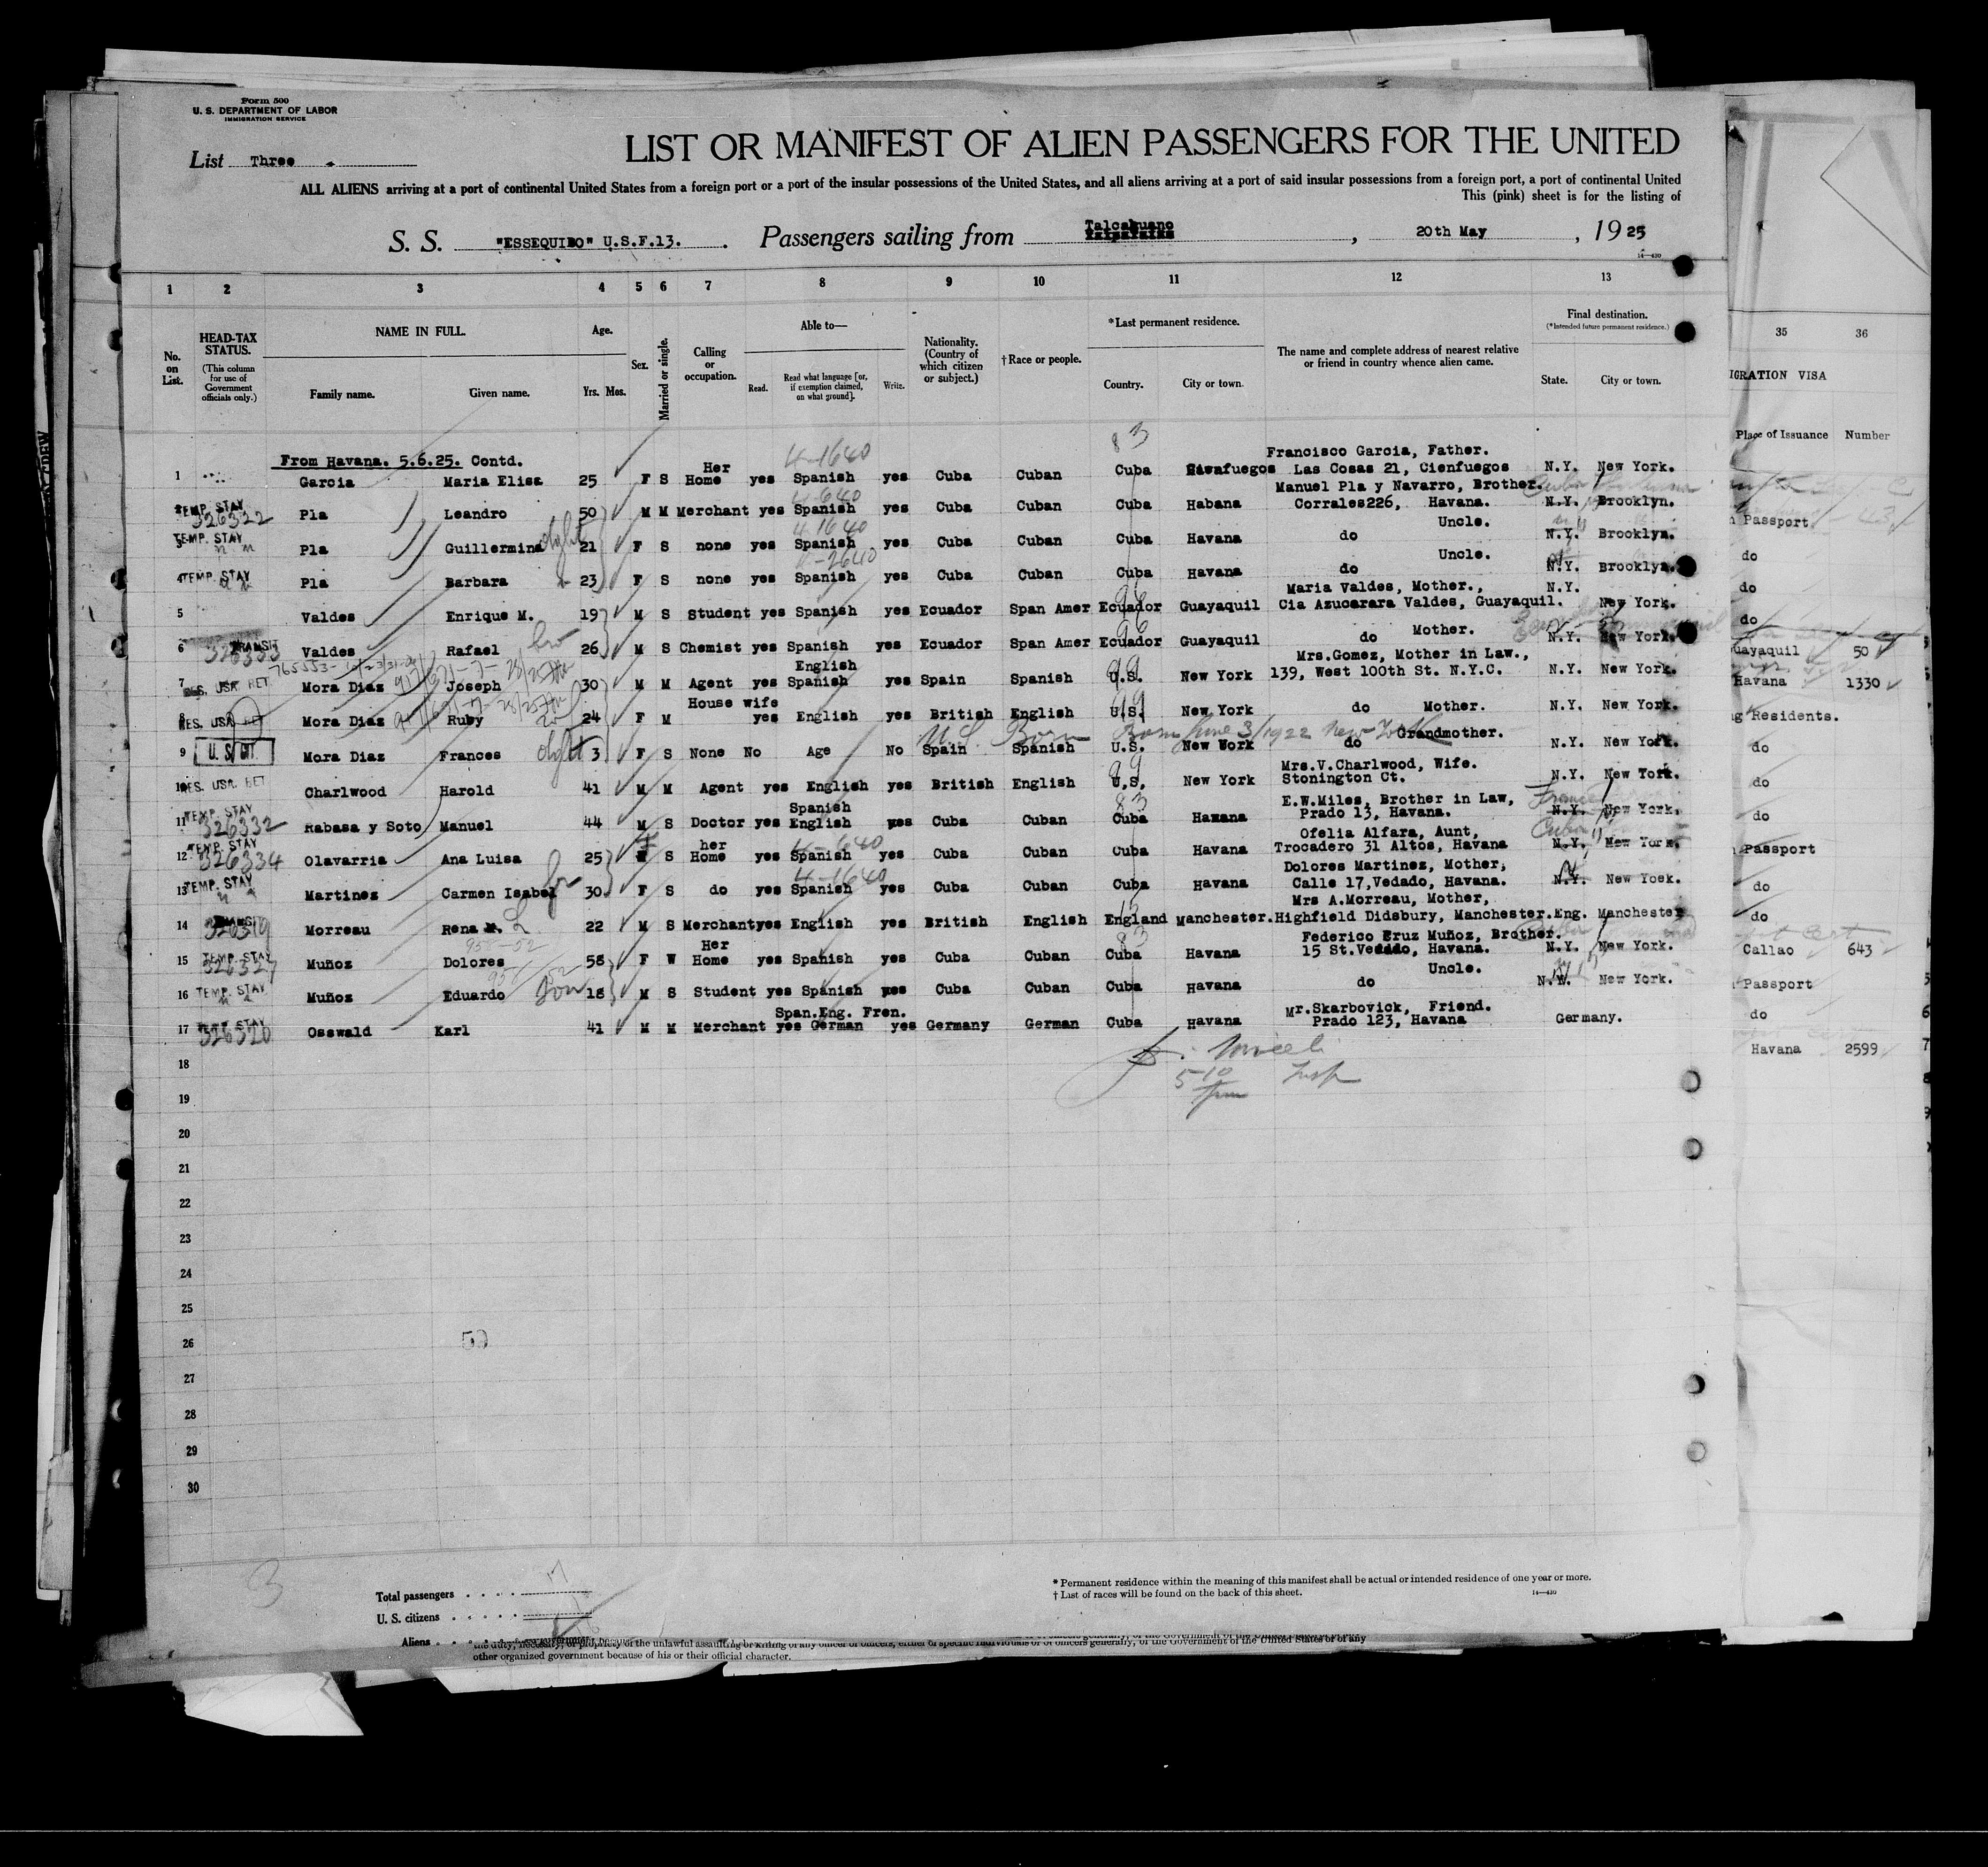 Form 500
U. S. DEPARTMENT OF LABOR
IMMIGRATION SERVICE
List Three
LIST OR MANIFEST OF ALIEN PASSENGERS FOR THE UNITED
ALL ALIENS arriving at a port of continental United States from a foreign port or a port of the insular possessions of the United States, and all aliens arriving at a port of said insular possessions from a foreign port, a port of continental United
This (pink) sheet is for the listing of
S. S. "ESSEQUIBO" U.S.F.13. Passengers sailing from Talcahuano, 20th May, 1925
14—430
1 2 3 4 5 6 7 8 9 10 11 12 13
No. on List.
HEAD-TAX STATUS.
(This column for use of Government officials only.)
NAME IN FULL.
Family name. Given name.
Age.
Yrs. Mos.
Sex.
Married or single.
Calling or occupation.
Able to—
Read. Read what language [or, if exemption claimed, on what ground]. Write.
Nationality. (Country of which citizen or subject.)
†Race or people.
*Last permanent residence.
Country. City or town.
The name and complete address of nearest relative or friend in country whence alien came.
Final destination.
(*Intended future permanent residence.)
State. City or town.
35 36
IGRATION VISA
Place of Issuance Number
From Havana. 5.6.25. Contd.
4-1640 83
1 Garcia Maria Elisa 25 F S Her Home yes Spanish yes Cuba Cuban Cuba Cienfuegos Francisco Garcia, Father. Las Cosas 21, Cienfuegos N.Y. New York.
2 TEMP. STAY 326322 Pla Leandro 50 M M Merchant yes Spanish yes Cuba Cuban Cuba Habana Manuel Pla y Navarro, Brother. Corrales226, Havana. N.Y. Brooklyn.
3 TEMP. STAY Pla Guillermina 21 F S none yes Spanish yes Cuba Cuban Cuba Havana do Uncle. N.Y. Brooklyn.
4 TEMP. STAY Pla Barbara 23 F S none yes Spanish yes Cuba Cuban Cuba Havana do Uncle. N.Y. Brooklyn.
5 Valdes Enrique M. 19 M S Student yes Spanish yes Ecuador Span Amer Ecuador Guayaquil Maria Valdes, Mother., Cia Azucarara Valdes, Guayaquil. N.Y. New York.
6 TRANSIT 326333 Valdes Rafael bro 26 M S Chemist yes Spanish yes Ecuador Span Amer Ecuador Guayaquil do Mother. N.Y. New York.
7 RES. USA. RET. Mora Diaz Joseph 30 M M Agent yes English Spanish yes Spain Spanish U.S. New York Mrs.Gomez, Mother in Law., 139, West 100th St. N.Y.C. N.Y. New York.
8 RES. USA. RET Mora Diaz Ruby 24 F M House wife yes English yes British English U.S. New York do Mother. N.Y. New York.
U.S. Born Born June 3/1922 New York
9 U. S. CIT. Mora Diaz Frances 3 F S None No Age No Spain Spanish U.S. New Work do Grandmother. N.Y. New York.
10 RES. USA. RET Charlwood Harold 41 M M Agent yes English yes British English U.S. New York Mrs.V.Charlwood, Wife. Stonington Ct. N.Y. New York.
11 TEMP. STAY 326332 Rabasa y Soto Manuel 44 M S Doctor yes Spanish English yes Cuba Cuban Cuba Havana E.W.Miles, Brother in Law, Prado 13, Havana. N.Y. New York.
12 TEMP. STAY 326334 Olavarria Ana Luisa 25 F S her Home yes Spanish yes Cuba Cuban Cuba Havana Ofelia Alfara, Aunt, Trocadero 31 Altos, Havana N.Y. New York.
13 TEMP. STAY Martinez Carmen Isabel 30 F S do yes Spanish yes Cuba Cuban Cuba Havana Dolores Martinez, Mother, Calle 17,Vedado, Havana. N.Y. New Yoek.
14 TRANSIT 326319 Morreau Rena M. 22 M S Merchant yes English yes British English England Manchester. Mrs A.Morreau, Mother, Highfield Didsbury, Manchester. Eng. Manchester
15 TEMP. STAY 326327 Muñoz Dolores 58 F W Her Home yes Spanish yes Cuba Cuban Cuba Havana Federico Cruz Muñoz, Brother. 15 St.Vedado, Havana. N.Y. New York.
16 TEMP. STAY Muñoz Eduardo son 18 M S Student yes Spanish yes Cuba Cuban Cuba Havana do Uncle. N.Y. New York.
17 TEMP. STAY 326320 Osswald Karl 41 M M Merchant yes Span.Eng. Fren. German yes Germany German Cuba Havana Mr.Skarbovick, Friend. Prado 123, Havana Germany.
18
19
20
21
22
23
24
25
26
27
28
29
30
Passport
do
do
do
Guayaquil 50
Havana 1330
g Residents.
do
do
do
Passport
do
do
Callao 643
Passport
do
Havana 2599
50
3
Total passengers 17
U. S. citizens
Aliens
* Permanent residence within the meaning of this manifest shall be actual or intended residence of one year or more.
† List of races will be found on the back of this sheet.
14—430
the duty, necessity, or propriety of the unlawful assaulting or killing of any officer or officers, either of specific individuals or of officers generally, of the Government of the United States or of any
other organized government because of his or their official character.